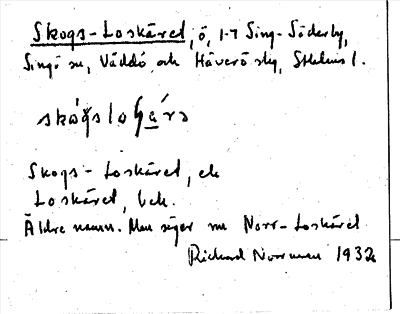 Skogs-Loskäret, ö, 1-7 Sing-Söderby,
Singö sn, Väddö och Häverö skg, Sthlms l.
Skogs-Loskäret, ek
Loskäret, bek.
Äldre namn. Man säger nu Norr-Loskäret
Richard Norrman 1932